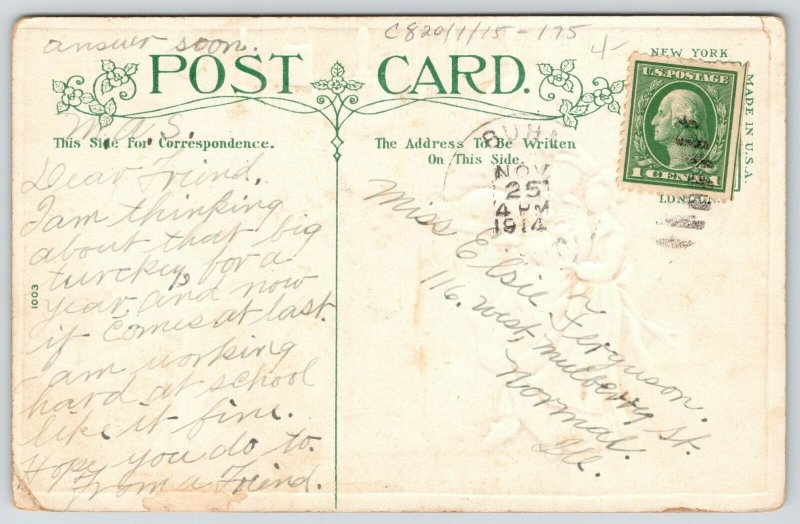 answer soon.
C820/1/15-175
4-
NEW YORK
POST CARD.
MADE IN U.S.A.
LONDON
U.S. POSTAGE
1 CENT 1
This Side For Correspondence.
The Address To Be Written
On This Side.
NOV
25
4 PM
1914
M.A.S.
Dear Friend,
I am thinking
about that big
turckey, for a
year, and now
it comes at last.
I am working
hard at school
like it fine.
Hope you do to.
From a Friend.
1003
Miss Elsie Ferguson.
116. West, Mulberry St.
Normal.
Ill.